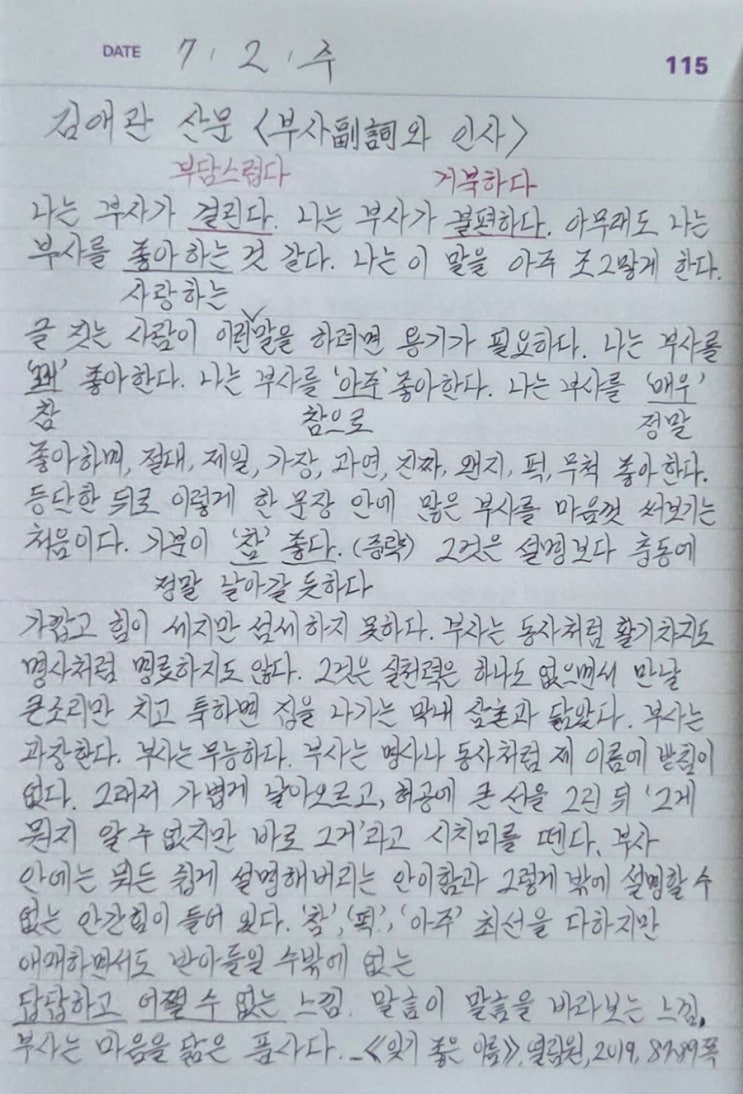 DATE 7. 2. 수
115
김애란 산문 <부사副詞와 인사>
부담스럽다 거북하다
나는 부사가 걸린다. 나는 부사가 불편하다. 아무래도 나는
부사를 좋아하는 것 같다. 나는 이 말을 아주 조그맣게 한다.
사랑하는
글 짓는 사람이 이런∨말을 하려면 용기가 필요하다. 나는 부사를
'꽤' 좋아한다. 나는 부사를 '아주' 좋아한다. 나는 부사를 '매우'
참 참으로 정말
좋아하며, 절대, 제일, 가장, 과연, 진짜, 왠지, 퍽, 무척 좋아한다.
등단한 뒤로 이렇게 한 문장 안에 많은 부사를 마음껏 써보기는
처음이다. 기분이 '참' 좋다. (중략) 그것은 설명보다 충동에
정말 날아갈 듯하다
가깝고 힘이 세지만 섬세하지 못하다. 부사는 동사처럼 활기차지도
명사처럼 명료하지도 않다. 그것은 실천력은 하나도 없으면서 만날
큰소리만 치고 툭하면 집을 나가는 막내 삼촌과 닮았다. 부사는
과장한다. 부사는 무능하다. 부사는 명사나 동사처럼 제 이름에 받침이
없다. 그래서 가볍게 날아오르고, 허공에 큰 선을 그린 뒤 '그게
뭔지 알 수 없지만 바로 그거'라고 시치미를 뗀다. 부사
안에는 뭐든 쉽게 설명해버리는 안이함과 그렇게 밖에 설명할 수
없는 안간힘이 들어 있다. '참', '퍽', '아주' 최선을 다하지만
애매하면서도 받아들일 수밖에 없는
답답하고 어쩔 수 없는 느낌. 말言이 말言을 바라보는 느낌.
부사는 마음을 닮은 품사다. _《잊기 좋은 이름》, 열림원, 2019, 87-89쪽